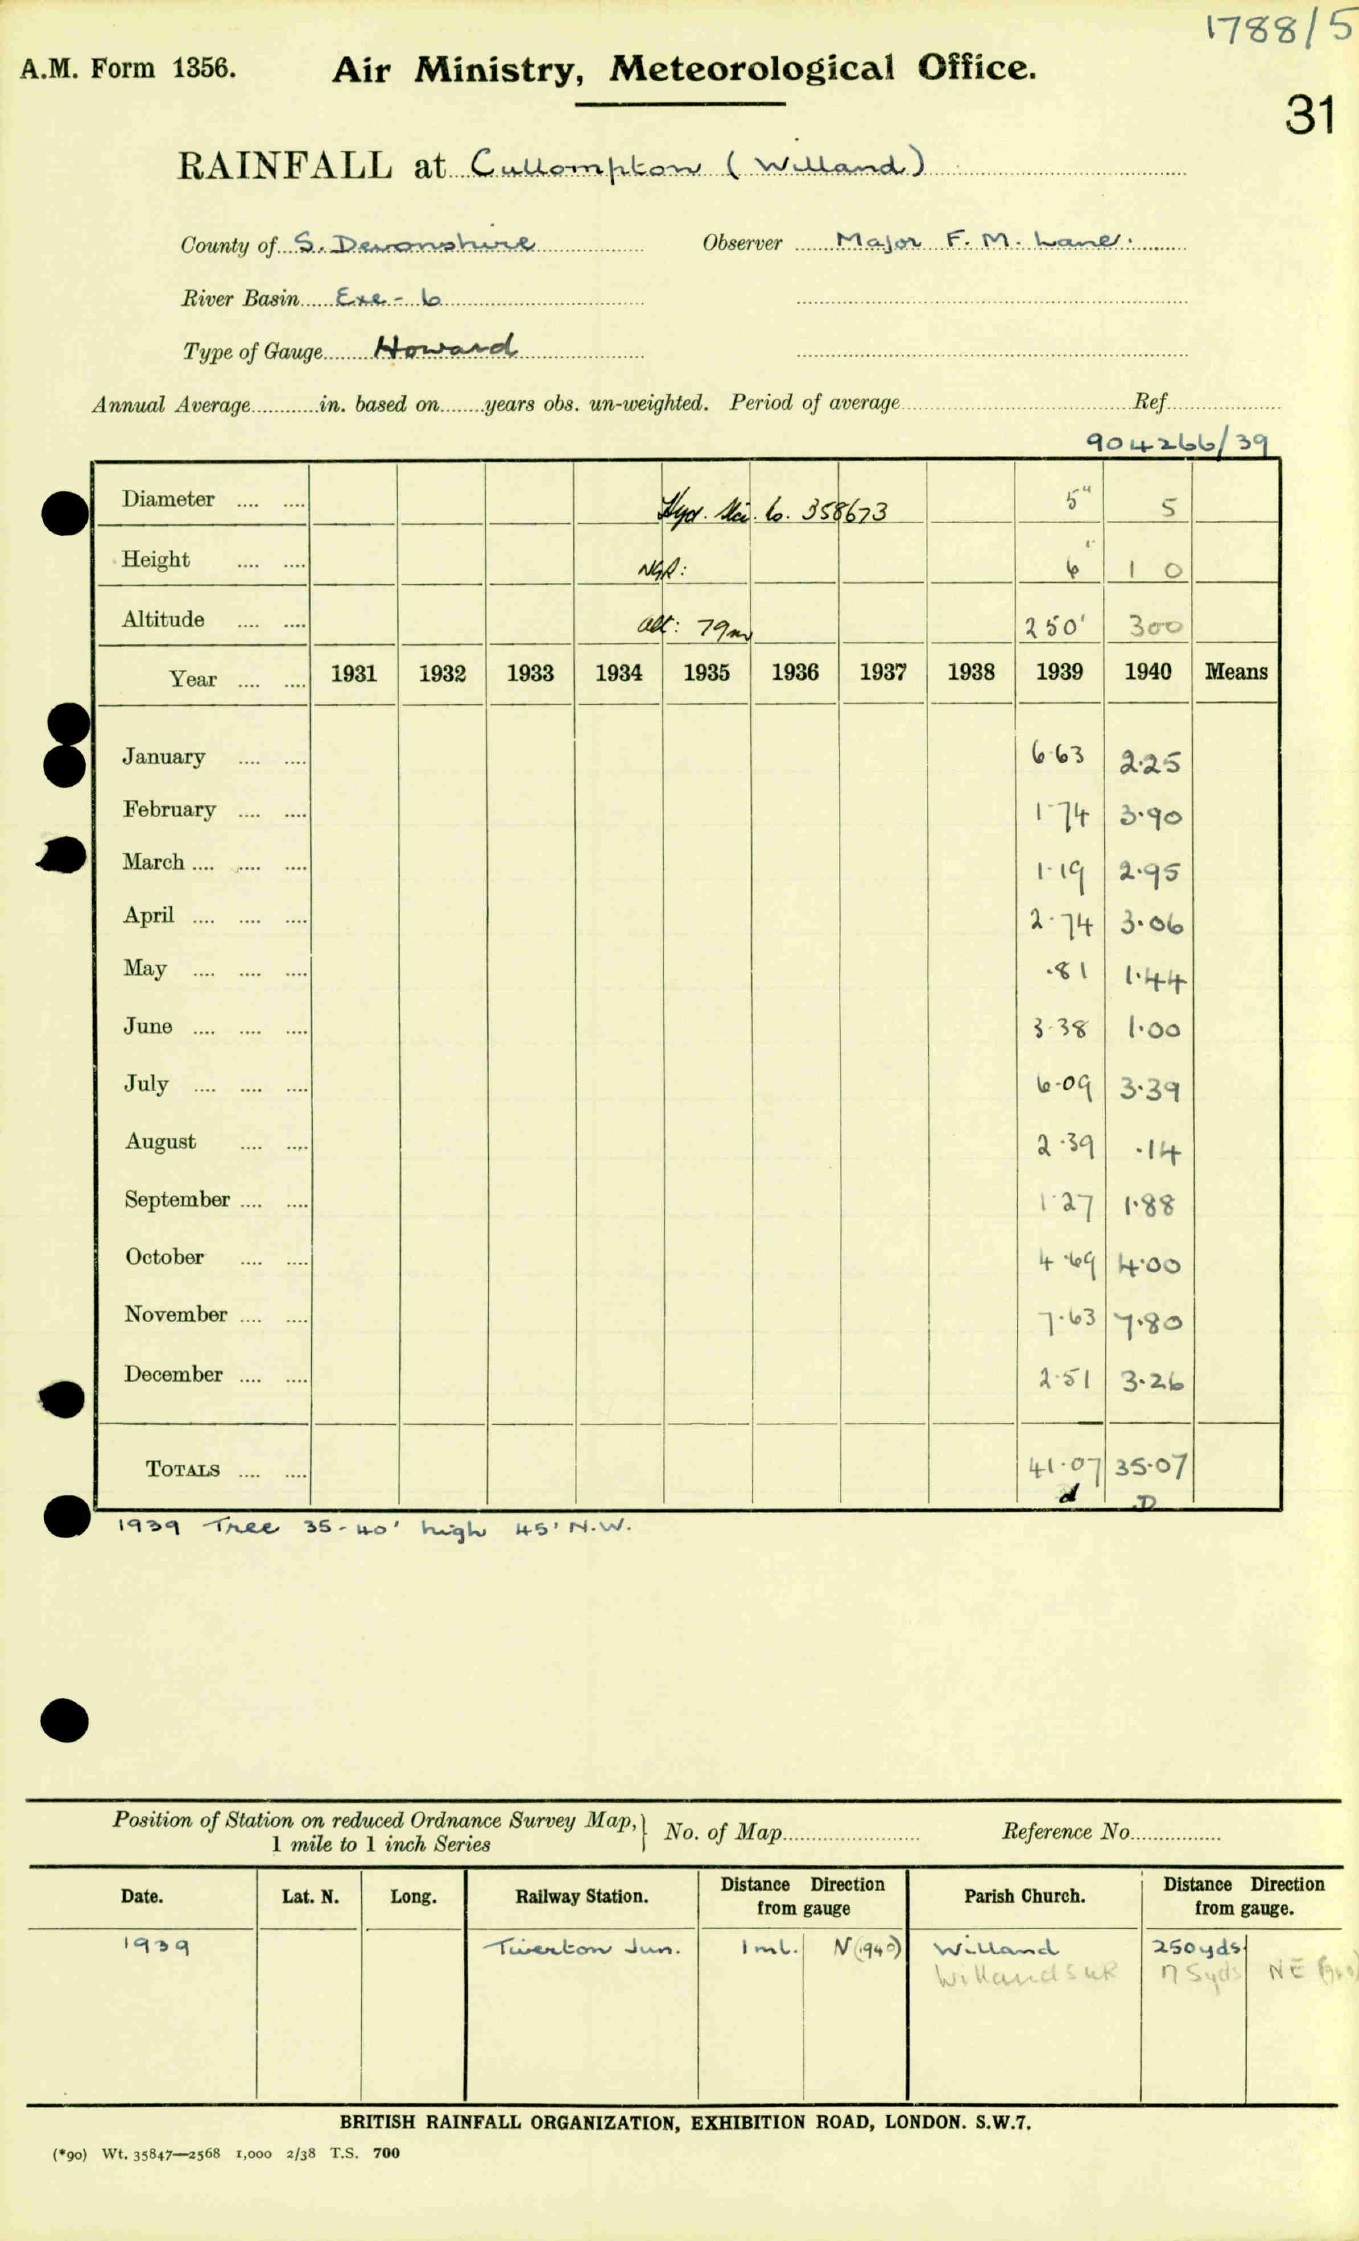 1788/5
A.M. Form 1356. Air Ministry, Meteorological Office.
31
RAINFALL at Cullompton (Willand)
County of S. Devonshire Observer Major F. M. Lane.
River Basin Exe - 6
Type of Gauge Howard
Annual Average in. based on years obs. un-weighted. Period of average Ref.
904266/39
Diameter Hyd. Mi. 6. 358673 5" 5
Height NGR: 6" 1 0
Altitude alt: 79m 250' 300
Year 1931 1932 1933 1934 1935 1936 1937 1938 1939 1940 Means
January 6.63 2.25
February 1.74 3.90
March 1.19 2.95
April 2.74 3.06
May .81 1.44
June 3.38 1.00
July 6.09 3.39
August 2.39 .14
September 1.27 1.88
October 4.69 4.00
November 7.63 7.80
December 2.51 3.26
TOTALS 41.07 35.07
d D
1939 Tree 35-40' high 45' N.W.
Position of Station on reduced Ordnance Survey Map, 1 mile to 1 inch Series No. of Map Reference No.
Date. Lat. N. Long. Railway Station. Distance Direction from gauge Parish Church. Distance Direction from gauge.
1939 Tiverton Jun. 1 ml. N (1940) Willand 250 yds
Willand 75 yds NE (1940)
BRITISH RAINFALL ORGANIZATION, EXHIBITION ROAD, LONDON. S.W.7.
(*90) Wt. 35847—2568 1,000 2/38 T.S. 700